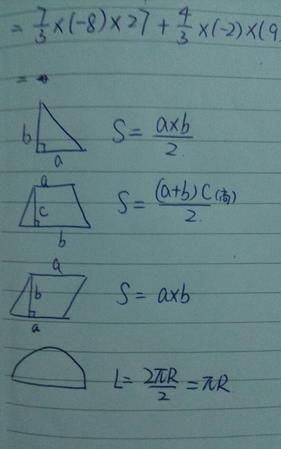 = 7/3 ×(-8)×27 + 4/3 ×(-2)×(9
=
b
a
S = a×b/2
a
c
b
S = (a+b)C(高)/2
a
b
a
S = a×b
L = 2πR/2 = πR